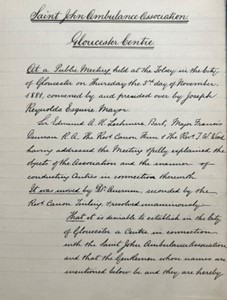 Saint John Ambulance Association
Gloucester Centre
At a Public Meeting held at the Tolsey in the City
of Gloucester on Thursday the 3rd day of November
1881, convened by and presided over by Joseph
Reynolds Esquire Mayor
Sir Edmund A. H. Lechmere Bart, Major Francis
Duncan R.A. The Revd. Canon Tinling & The Revd. J. W.
having addressed the Meeting & fully explained the
objects of the Association and the manner of
conducting Centres in connection therewith
It was moved by Dr. seconded by the
Revd. Canon Tinling & resolved unanimously
That it is desirable to establish in the City
of Gloucester a Centre in connection
with the Saint John Ambulance Association
and that the Gentlemen whose names are
mentioned below be and they are hereby